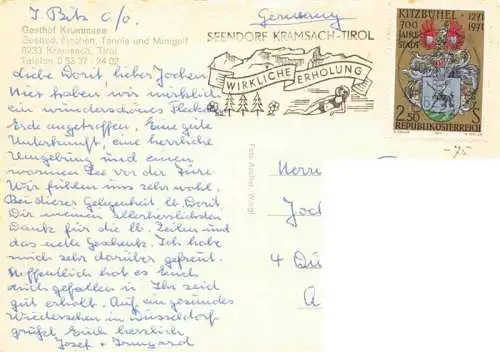 J. Bitz c/o.
Gasthof Krummsee
Seebad, Fischen, Tennis und Minigolf
6233 Kramsach, Tirol
Telefon 0 53 37 - 24 02
Liebe Dorit, lieber Jochen!
Hier haben wir wirklich
ein wunderschönes Fleckchen
Erde angetroffen. Eine gute
Unterkunft, eine herrliche
Umgebung und einen
warmen See vor der Türe.
Wir fühlen uns sehr wohl.
Bei dieser Gelegenheit lb. Dorit
Dir meinen allerherzlichsten
Dank für die lb. Zeilen und
das nette Geschenk. Ich habe
mich sehr darüber gefreut.
Hoffentlich hat es Euch
auch gefallen u. Ihr seid
gut erholt. Auf ein gesundes
Wiedersehen in Düsseldorf
grüßet Euch herzlich
Josef + Irmgard
Germany
SEENDORF KRAMSACH-TIROL
WIRKLICHE ERHOLUNG
KITZBÜHEL 1271
700 1971
JAHRE
STADT
2.50 S
REPUBLIK ÖSTERREICH
-75
Herrn
Joch
4 Dü